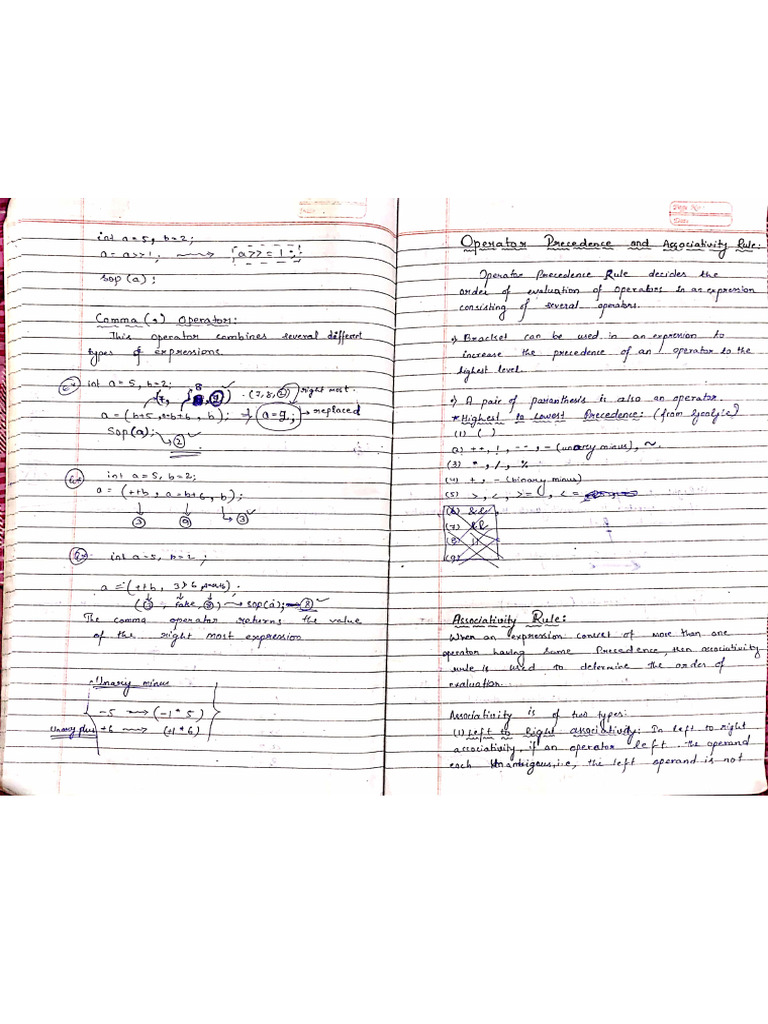 int a = 5, b = 2;
a = a >> 1; a >> = 1;
sop (a);
Comma (,) Operator:
This operator combines several different
types of expressions.
Ex int a = 5, b = 2;
8
(7, 8, 2) right most.
a = (b+5, a+b+b, b); → replaced
Sop(a);
2
Ex int a = 5, b = 2;
a = (++b, a=b+6, b);
3 9 3
Ex int a = 5, b = 2;
a = (++b, 3>6,
sop(a); 8
The comma operator returns the value
of the right most expression
Unary minus
-5 → (-1 * 5)
Unary plus +6 → (+1 * 6)
Page No.
Date
Operator Precedence and Associativity Rule:
Operator Precedence Rule decides the
order of evaluation of operators in an expression
consisting of several operators.
Bracket can be used in an expression to
increase the precedence of an operator to the
highest level.
A pair of paranthesis is also an operator.
* Highest to Lowest Precedence: (from
(1) ( )
(2) ++, !, --, - (unary minus), ~.
(3) *, /, %
(4) +, - (binary minus)
(5) >, <, >=, <=
(6) &&
(7) &&
(8) ||
(9)
Associativity Rule:
When an expression consist of more than one
operator having same Precedence, then associativity
rule is used to determine the order of
evaluation.
Associativity is of two types:
(1) Left to Right associativity: In left to right
associativity, if an operator left the operand
each Unambigous, i.e, the left operand is not